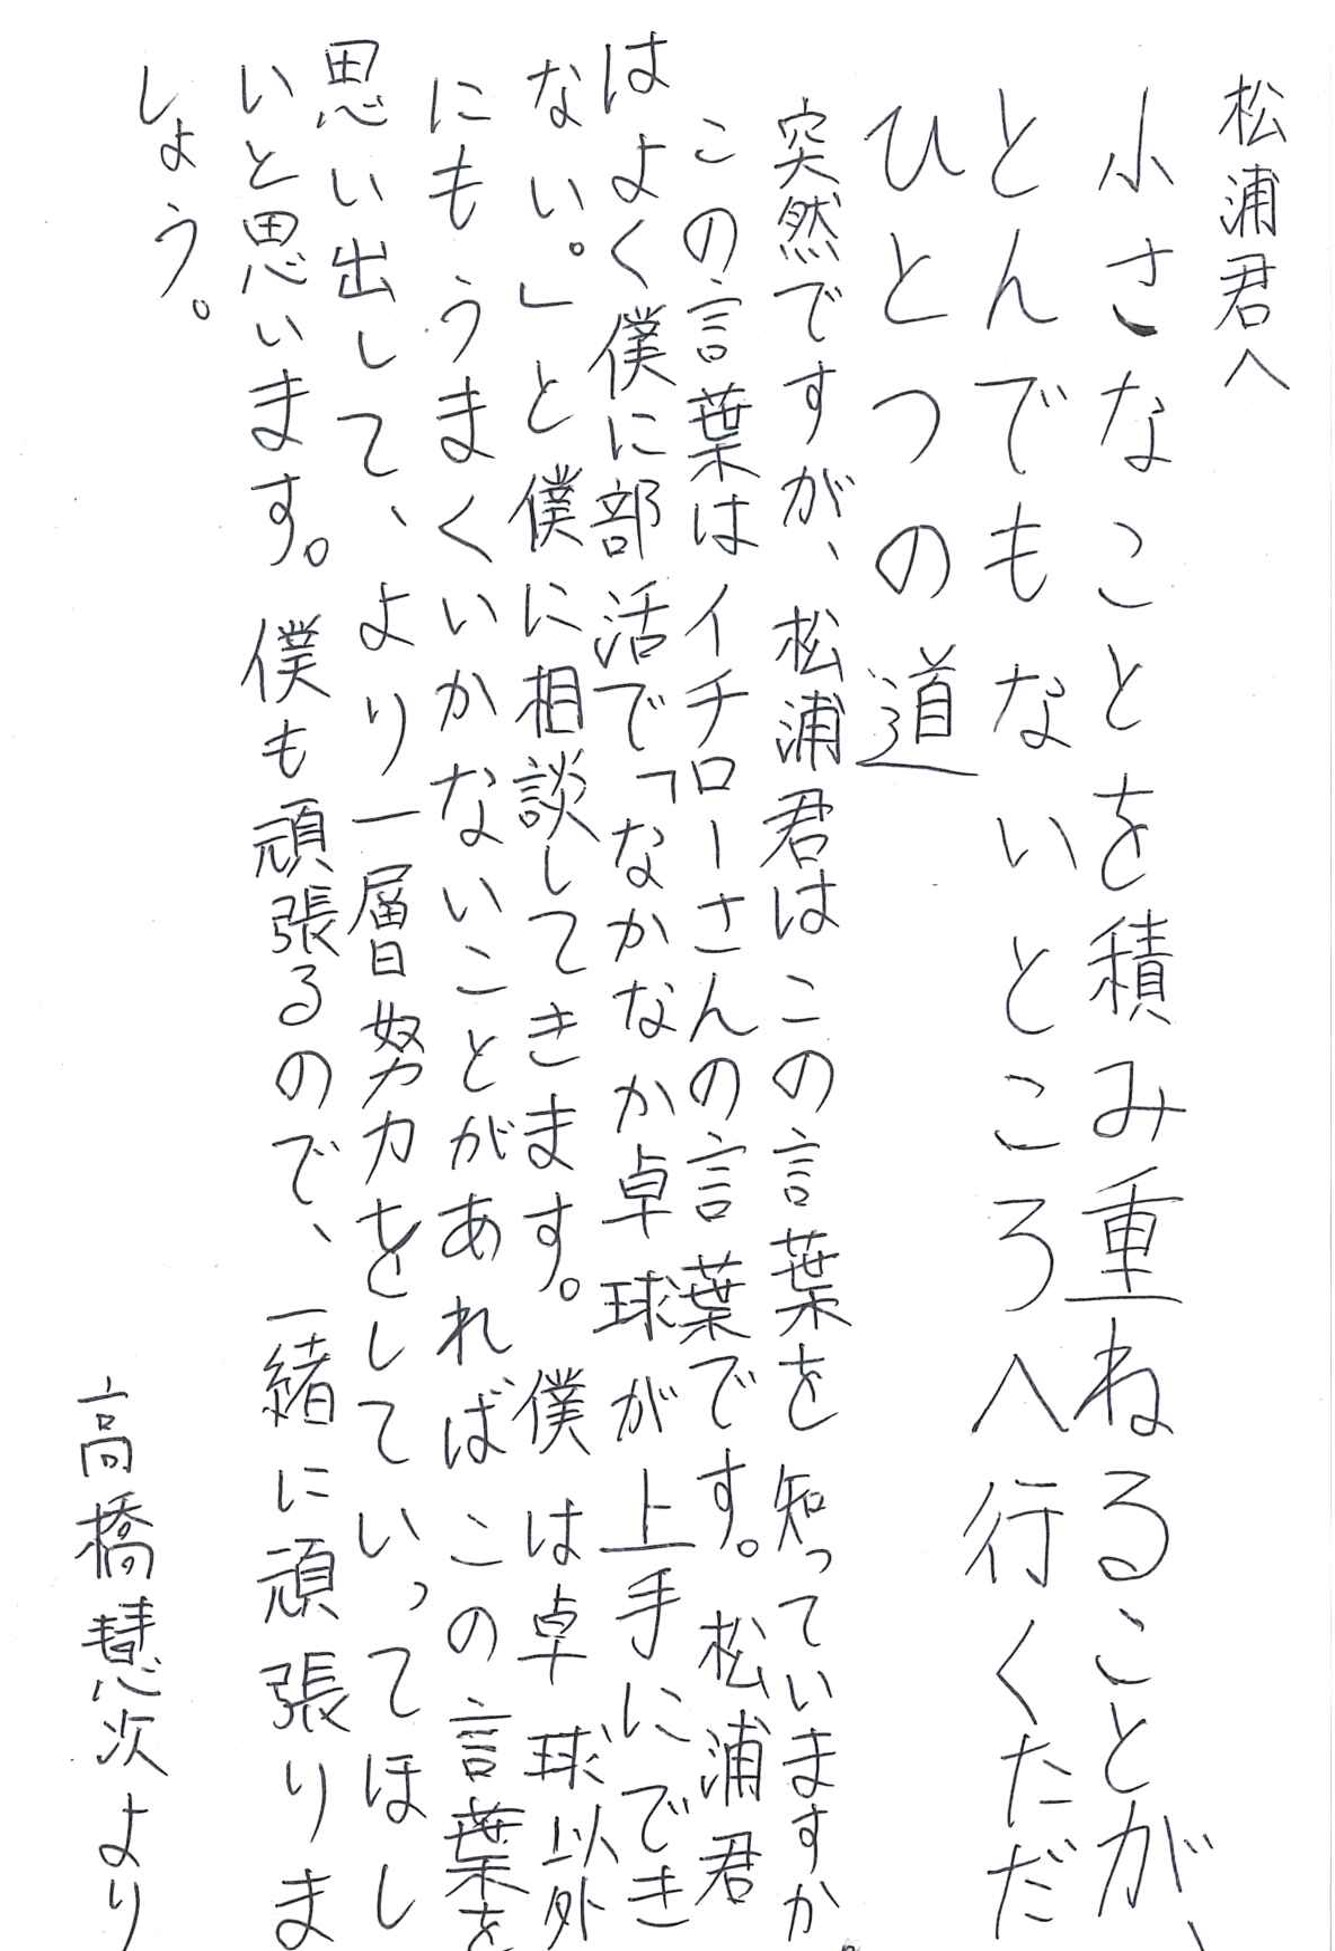 松浦君へ
小さなことを積み重ねることが、
とんでもないところへ行くただ
ひとつの道
突然ですが、松浦君はこの言葉を知っていますか。
この言葉はイチローさんの言葉です。松浦君
はよく僕に部活で「なかなか卓球が上手にでき
ない。」と僕に相談してきます。僕は卓球以外
にもうまくいかないことがあればこの言葉を
思い出して、より一層努力をしていってほし
いと思います。僕も頑張るので、一緒に頑張りま
しょう。
高橋慧次より